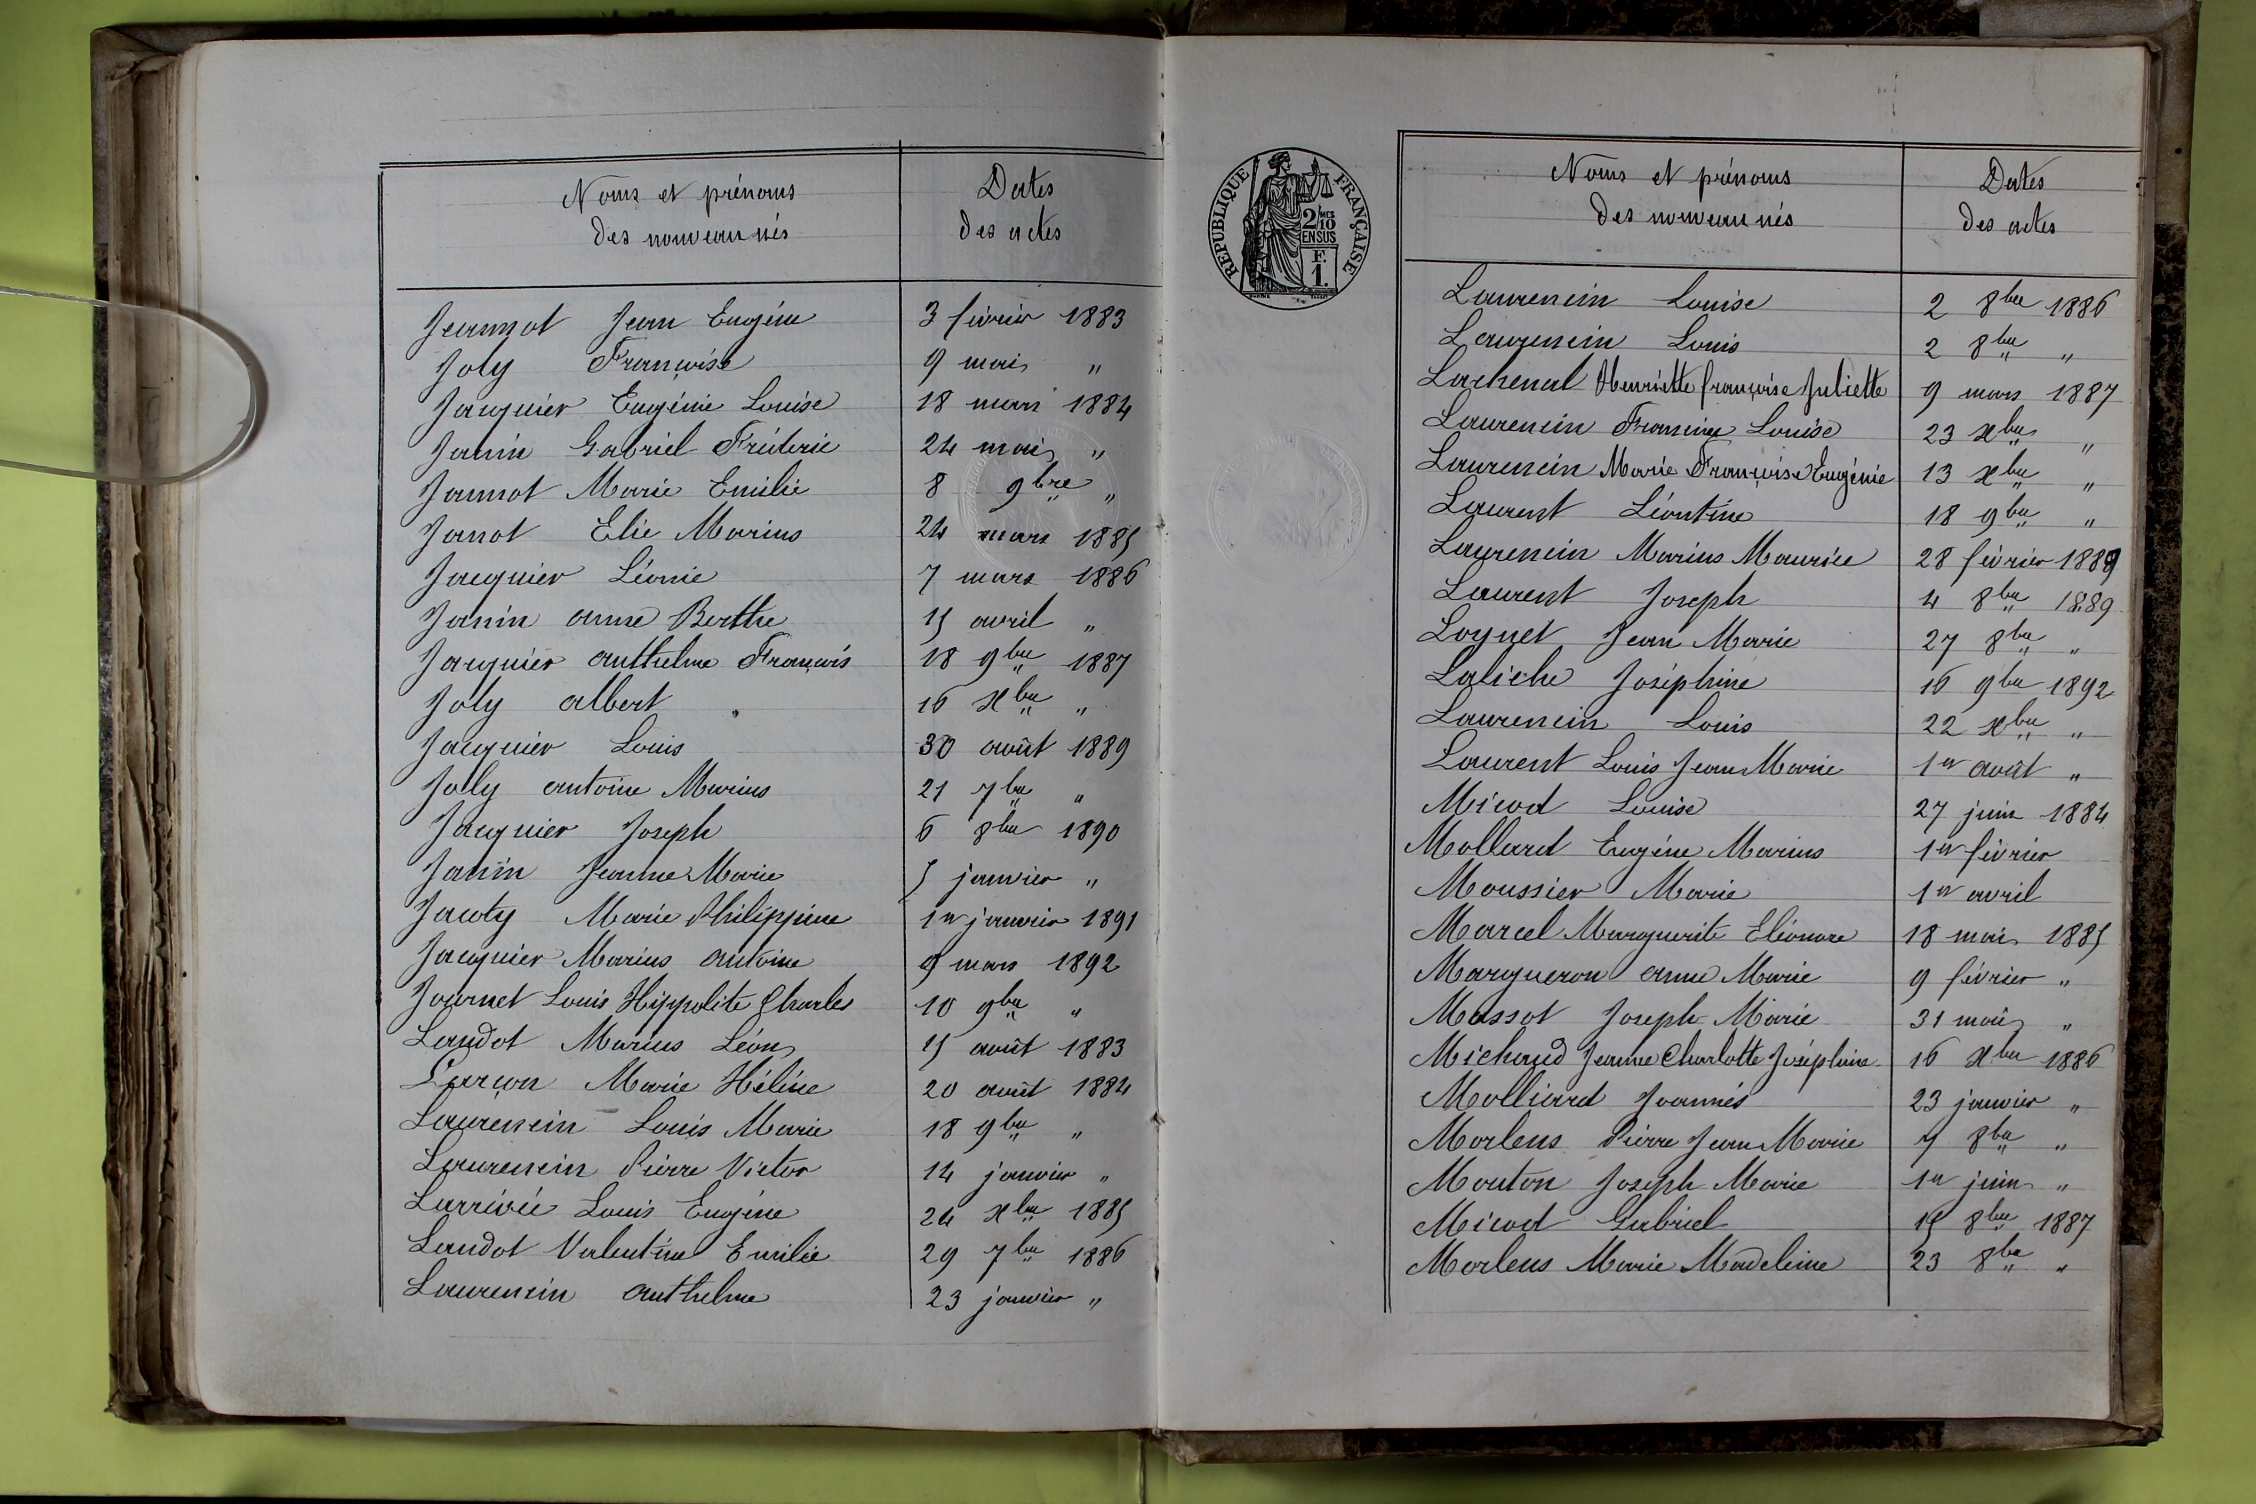 Noms et prénoms
des nouveau nés
Dates
des actes
Jeannot Jean Eugène 3 février 1883
Joly Françoise 9 mai "
Jacquier Eugénie Louise 18 mars 1884
Janin Gabriel Fréderic 24 mai "
Jannot Marie Emilie 8 9bre "
Janot Elie Marius 24 mars 1885
Jacquier Léonie 7 mars 1886
Janin anne Berthe 15 avril "
Jacquier anthelme François 18 9bre 1887
Joly albert 16 xbre "
Jacquier Louis 30 août 1889
Jolly antoine Marius 21 7bre "
Jacquier Joseph 6 8bre 1890
Janin Jeanne Marie 5 janvier "
Jacoty Marie Philippine 1er janvier 1891
Jacquier Marius antoine 9 mars 1892
Journet Louis Hippolite Charles 10 9bre "
Landot Marius Léon 15 août 1883
Larçon Marie Hélène 20 août 1884
Laurencin Louis Marie 18 9bre "
Laurencin Pierre Victor 14 janvier "
Larrivée Louis Eugène 24 xbre 1885
Landot Valentine Emilie 29 7bre 1886
Laurencin anthelme 23 janvier "
RÉPUBLIQUE FRANÇAISE
2/10 MES
EN SUS
F.
1.
Noms et prénoms
des nouveau nés
Dates
des actes
Laurencin Louise 2 8bre 1886
Laurencin Louis 2 8bre "
Lachenal Henriette françoise Juliette 9 mars 1887
Laurencin Francine Louise 23 xbre "
Laurencin Marie Françoise Eugénie 13 xbre "
Laurent Léontine 18 9bre "
Laurencin Marius Maurice 28 février 1889
Laurent Joseph 4 8bre 1889
Loynet Jean Marie 27 8bre "
Laliche Joséphine 16 9bre 1892
Laurencin Louis 22 xbre "
Laurent Louis Jean Marie 1er août "
Micod Louise 27 juin 1884
Mollard Eugène Marius 1er février
Moussier Marie 1er avril
Marcel Marguerite Eléonore 18 mai 1885
Margueron anne Marie 9 février "
Massot Joseph Marie 31 mai "
Michaud Jeanne Charlotte Joséphine 16 xbre 1886
Molliard Joannés 23 janvier "
Morlens Pierre Jean Marie 7 8bre "
Mouton Joseph Marie 1er juin "
Micod Gabriel 15 8bre 1887
Morlens Marie Madeleine 23 8bre "